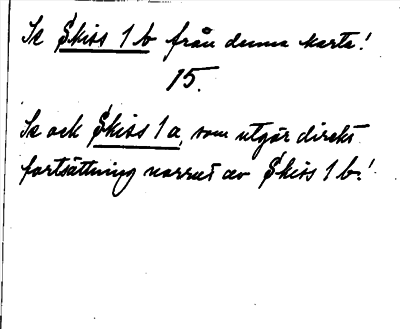 Se Skiss 1 b från denna karta!
15.
Se och Skiss 1 a, som utgör direkt
fortsättning norrut av Skiss 1 b!